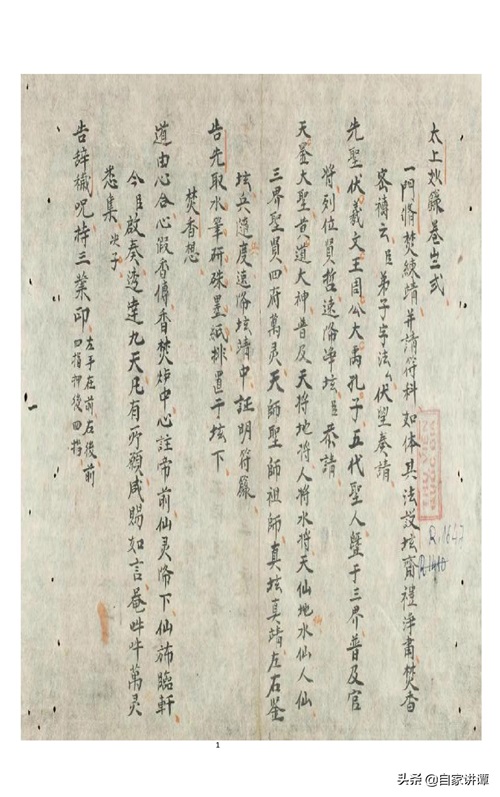 太上妙籙卷之弍
一門將焚綾靖并請符科如体具法設坛齋禮淨肅焚香
密禱云臣弟子字法么伏望奏請
先聖伏羲文王周公大禹孔子五代聖人曁于三界普及官
將列位賢哲遠降净坛臣恭請
天罡大聖黄道大神普及天將地將人將水將天仙地水仙人仙
三界聖賢四府萬灵天師聖師祖師真坛真靖左右鉴
坛兵遠度遠降坛靖中証明符籙
告先取水筆研硃墨紙排置于坛下
焚香想
道由心合心假香傳香焚炉中心註帝前仙灵降下仙斾臨軒
今臣啟奏逕達九天凡有所願咸賜如言
萬灵
悉集次子
告辞穢咒持三業印左手在前右後前
四指押後四指
R.1647
R.1410
1
头条@自家讲谭